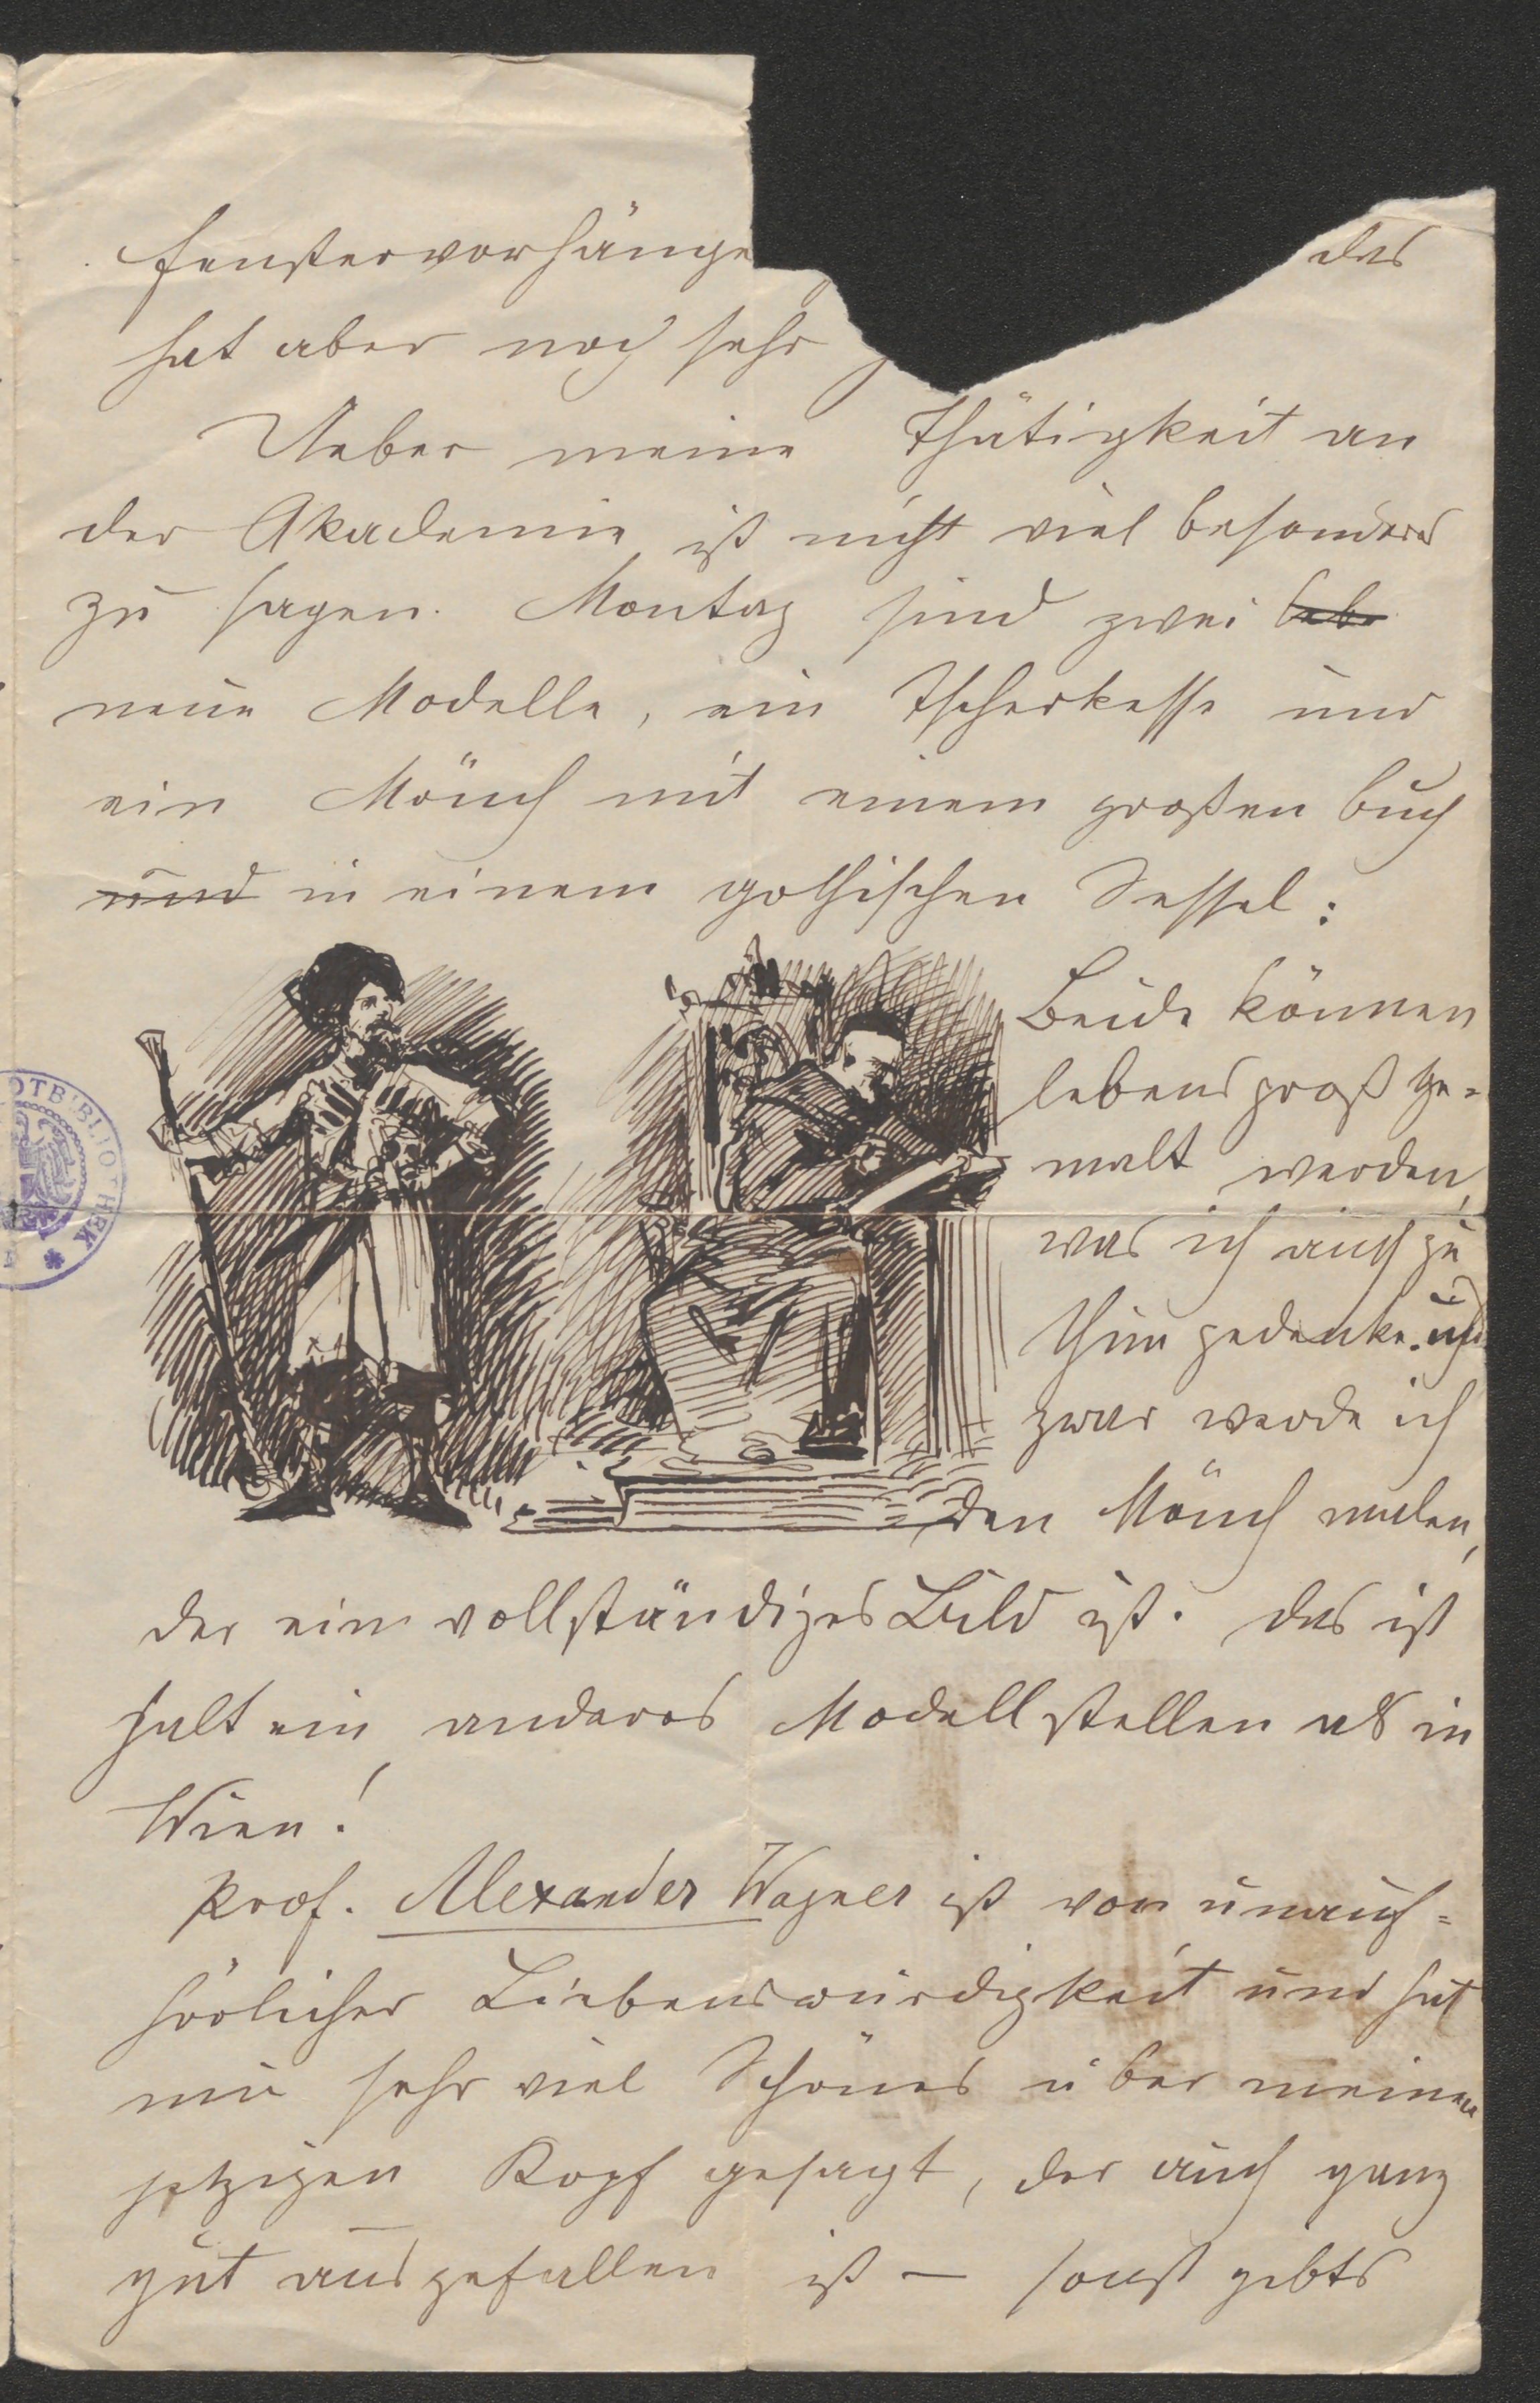 Fenstervorhänge das
hat aber noch sehr
Ueber meine Thätigkeit an
der Akademie ist nicht viel besonders
zu sagen. Montag sind zwei
neue Modelle, ein Tscherkesse und
ein Mönch mit einem großen Buch
und in einem gothischen Sessel:
Beide können
lebensgroß ge=
malt werden,
was ich auch zu
thun gedenke. und
zwar werde ich
den Mönch malen,
der ein vollständiges Bild ist. Das ist
halt ein anderes Modellstellen als in
Wien!
Prof. Alexander Wagner ist von unauf=
hörlicher Liebenswürdigkeit und hat
mir sehr viel Schönes über meinen
jetzigen Kopf gesagt, der auch ganz
gut ausgefallen ist — sonst gibts
OTBIBLIOTHEK